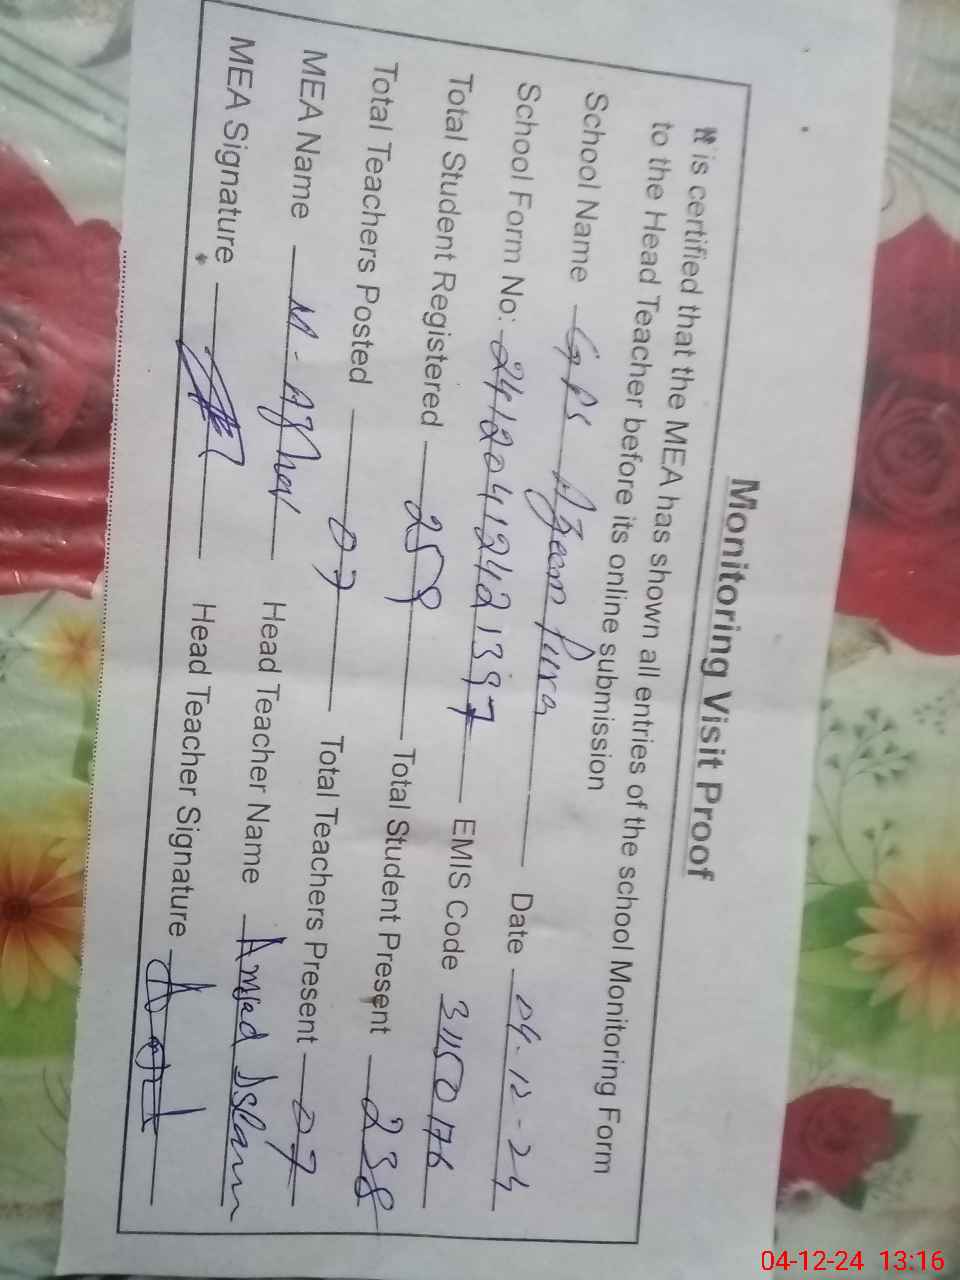 Monitoring Visit Proof
It is certified that the MEA has shown all entries of the school Monitoring Form
to the Head Teacher before its online submission
School Name GPS Azeem Pura Date 04-12-24
School Form No: 24120412421397 EMIS Code 31150176
Total Student Registered 259 Total Student Present 238
Total Teachers Posted 07 Total Teachers Present 07
MEA Name M. Afzal Head Teacher Name Amjad Islam
MEA Signature Head Teacher Signature
04-12-24 13:16